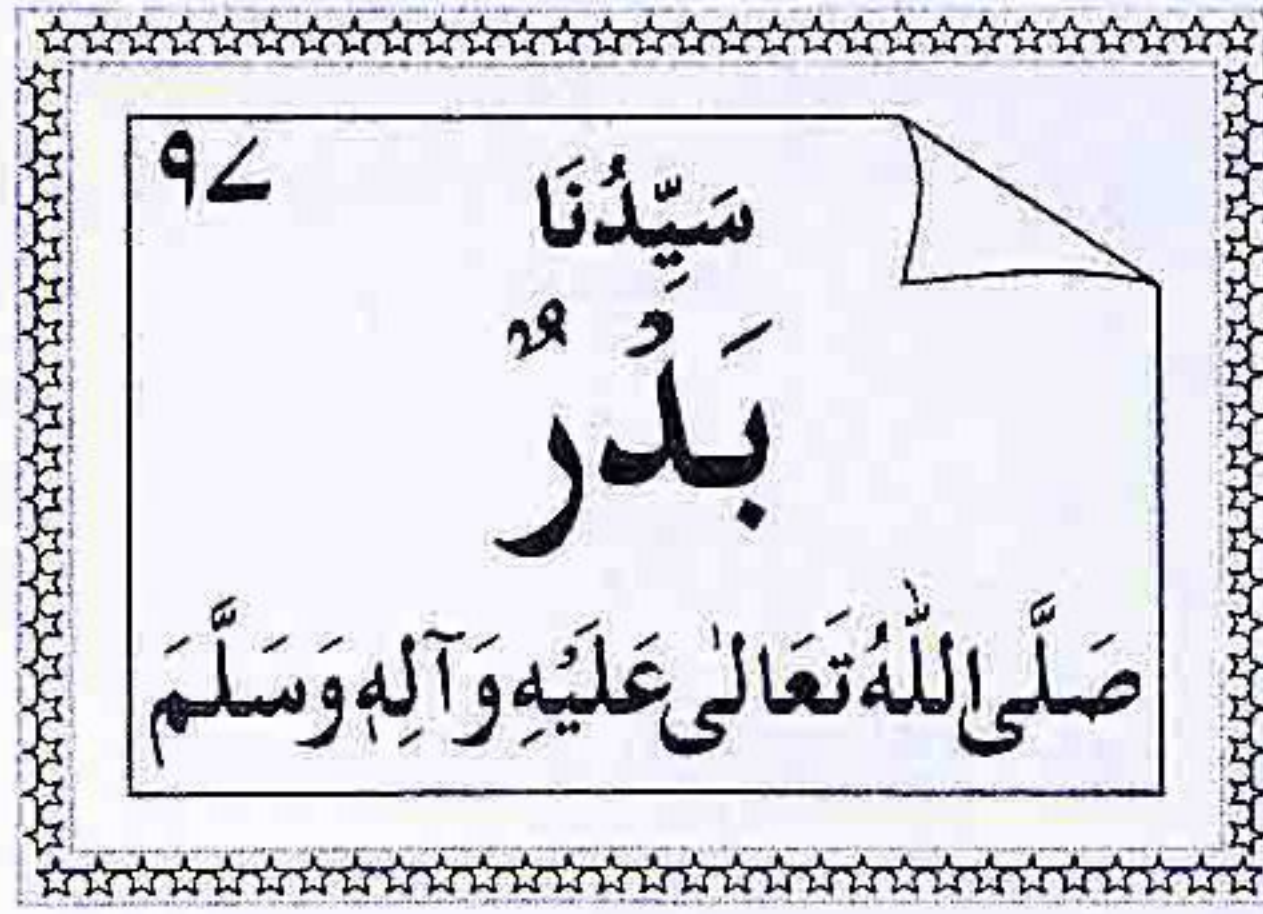 ۹۷
سَيِّدُنَا
بَدْرٌ
صَلَّى اللّٰهُ تَعَالٰى عَلَيْهِ وَآلِهٖ وَسَلَّمَ